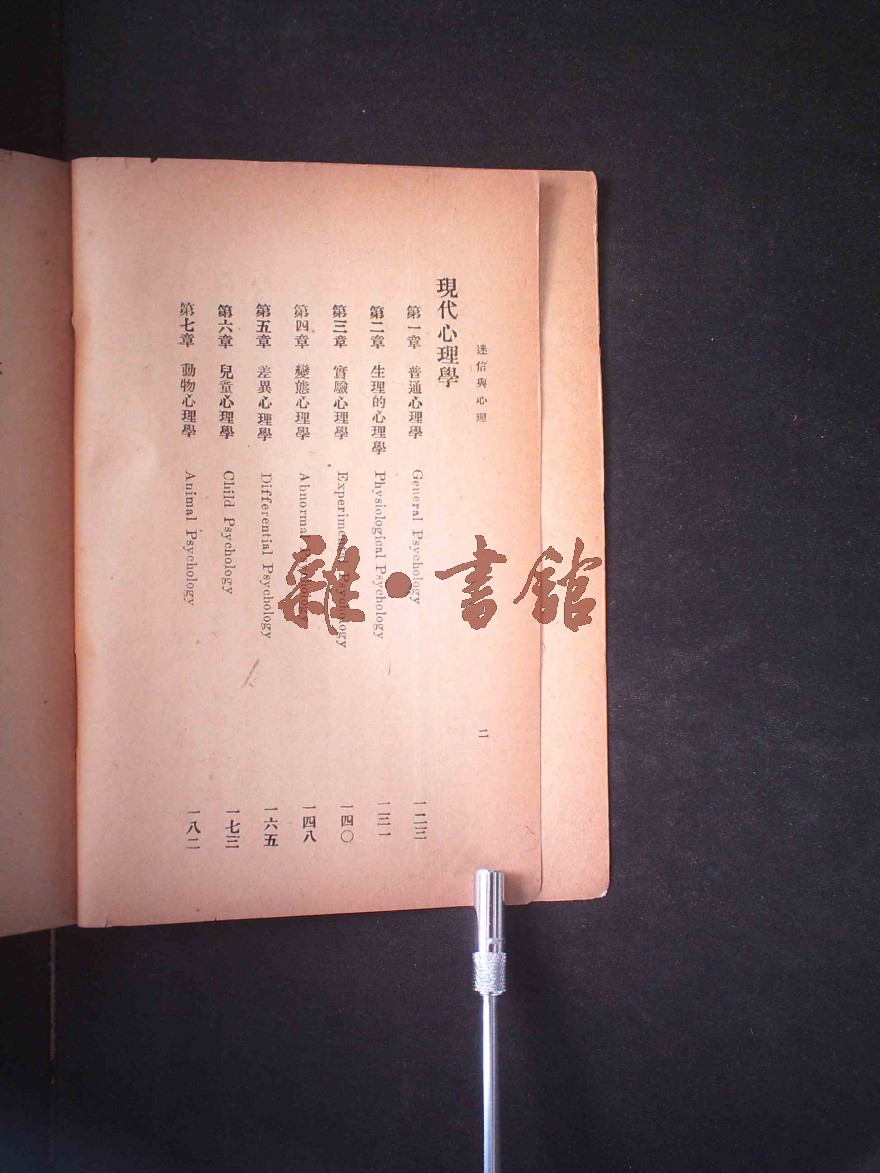 迷信與心理
二
現代心理學
第一章 普通心理學 General Psychology 一二三
第二章 生理的心理學 Physiological Psychology 一三一
第三章 實驗心理學 Experimental Psychology 一四〇
第四章 變態心理學 Abnormal Psychology 一四八
第五章 差異心理學 Differential Psychology 一六五
第六章 兒童心理學 Child Psychology 一七三
第七章 動物心理學 Animal Psychology 一八二
雜·書館